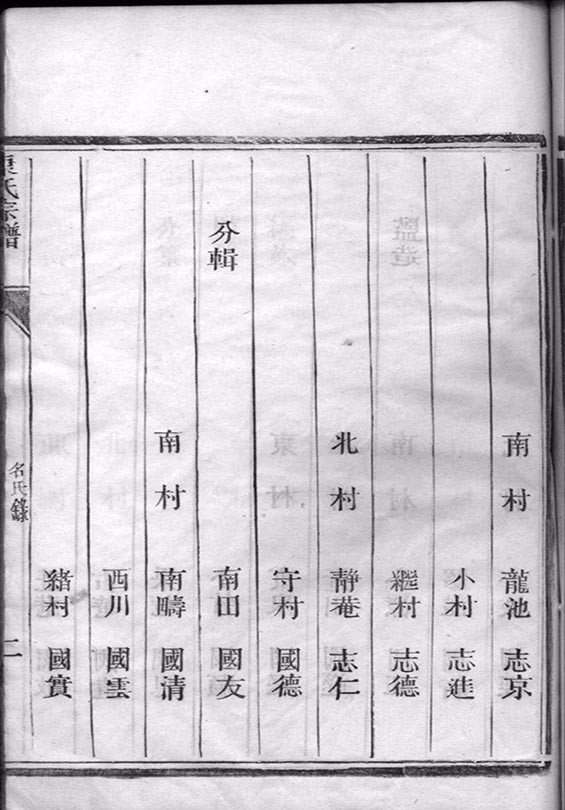 南村 龍池 志京
小村 志進
繼村 志德
北村 靜菴 志仁
守村 國德
分輯 南田 國友
南村 南疇 國清
西川 國雲
緒村 國實
氏宗譜
名氏錄
二